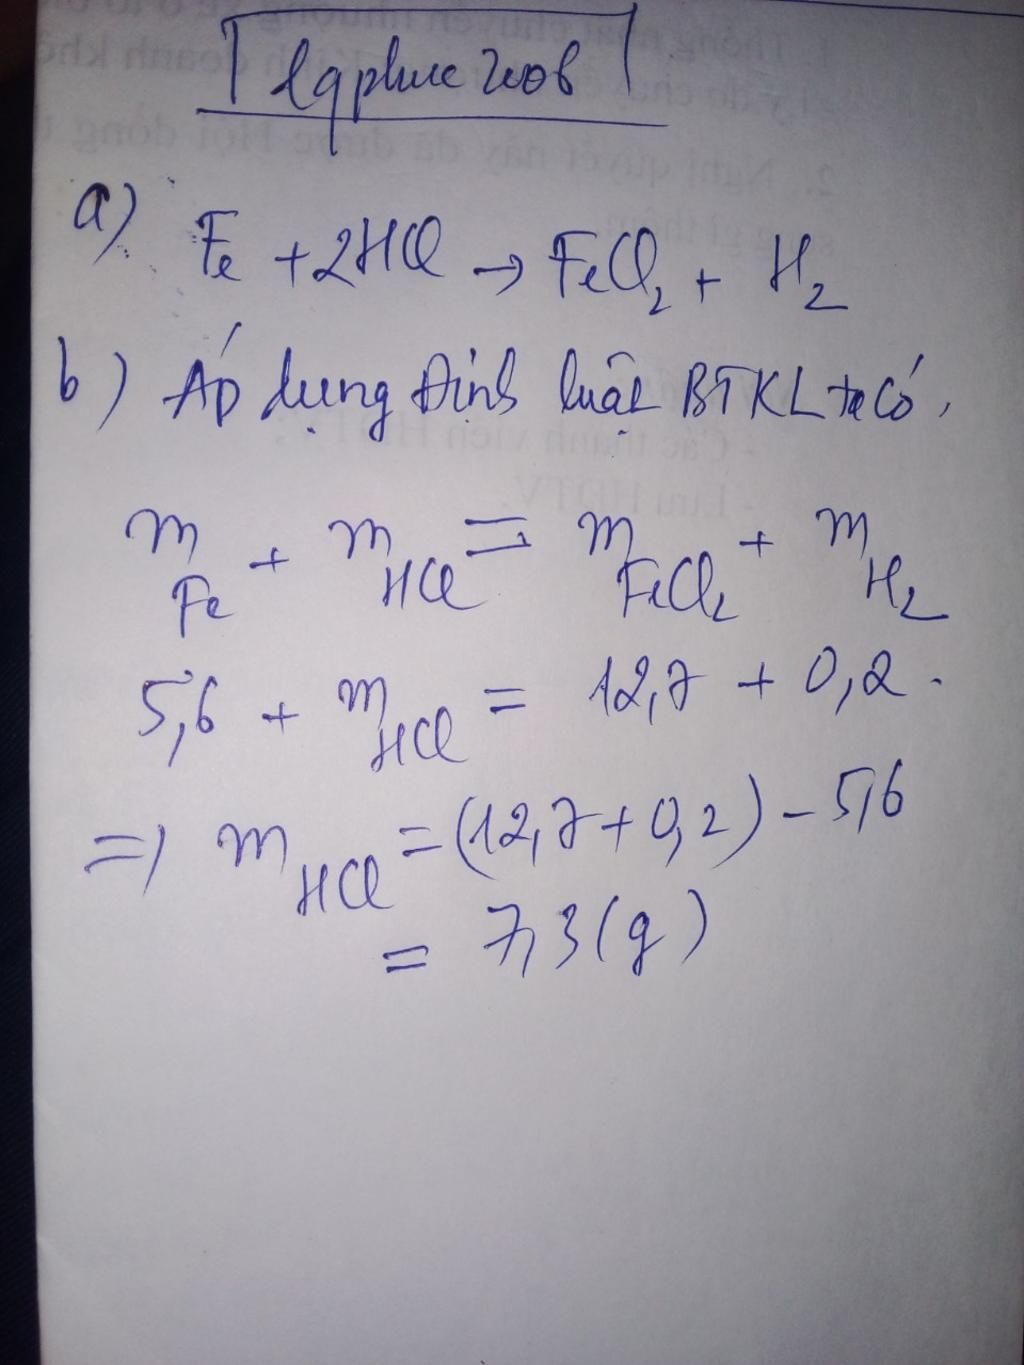 lqphuc 2006
a) Fe + 2HCl → FeCl₂ + H₂
b) Áp dụng Định luật BTKL ta có,
m_Fe + m_HCl = m_FeCl₂ + m_H₂
5,6 + m_HCl = 12,7 + 0,2.
=> m_HCl = (12,7+0,2) - 5,6
= 7,3 (g)